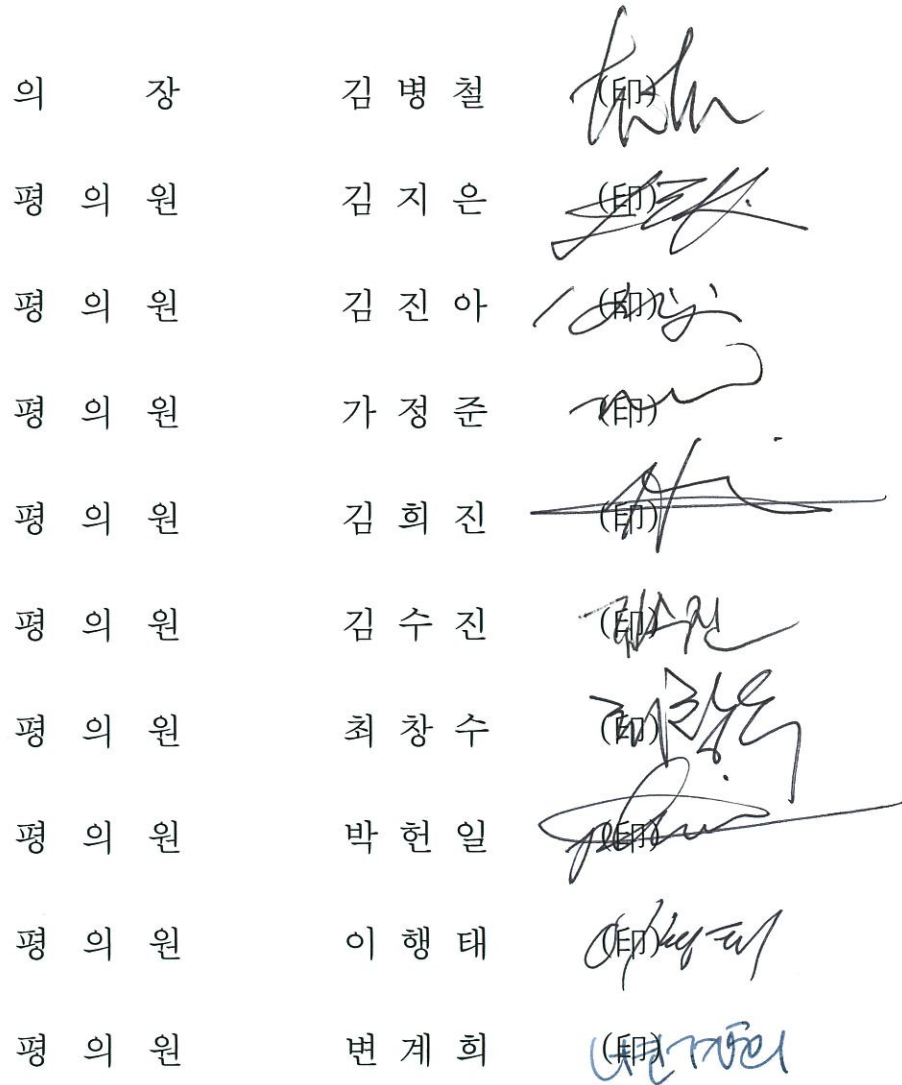 의 장 김 병 철 (印)
평 의 원 김 지 은 (印)
평 의 원 김 진 아 (印)
평 의 원 가 정 준 (印)
평 의 원 김 희 진 (印)
평 의 원 김 수 진 (印)
평 의 원 최 창 수 (印)
평 의 원 박 헌 일 (印)
평 의 원 이 행 태 (印)
평 의 원 변 계 희 (印)